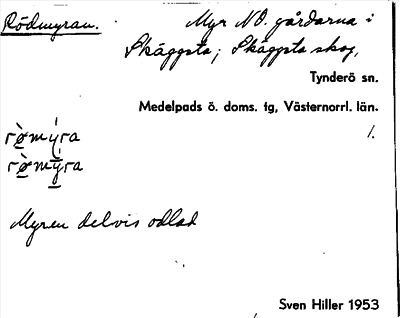 Rödmyran.
Myr NO. gårdarna i
Skäggsta; Skäggsta skog,
Tynderö sn.
Medelpads ö. doms. tg, Västernorrl. län.
1.
Myren delvis odlad
Sven Hiller 1953